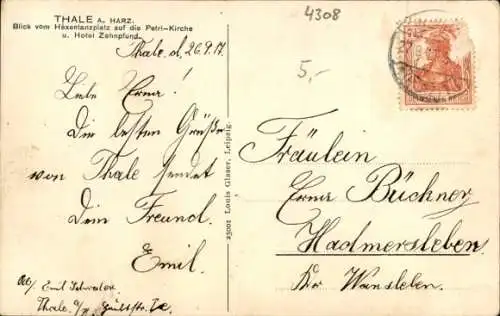 THALE A. HARZ.
Blick vom Hexentanzplatz auf die Petri-Kirche
u. Hotel Zehnpfund.
4308
5,-
Thale d, 26.9.17.
Liebe Erna!
Die besten Grüße
von Thale sendet
Dein Freund.
Emil.
Abs/ Emil Schrader
Thale a/H
23001 Louis Glaser, Leipzig.
Fräulein
Erna Büchner
Hadmersleben
Bez Wansleben.